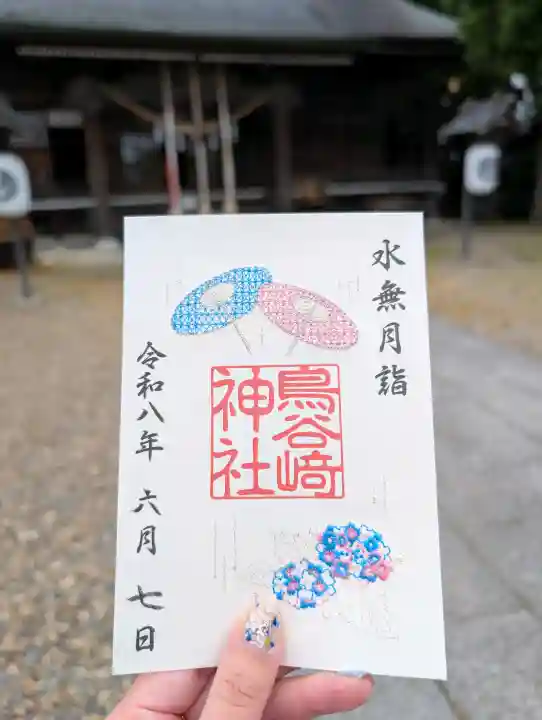 水無月詣
鳥谷﨑
神社
令和八年 六月 七日